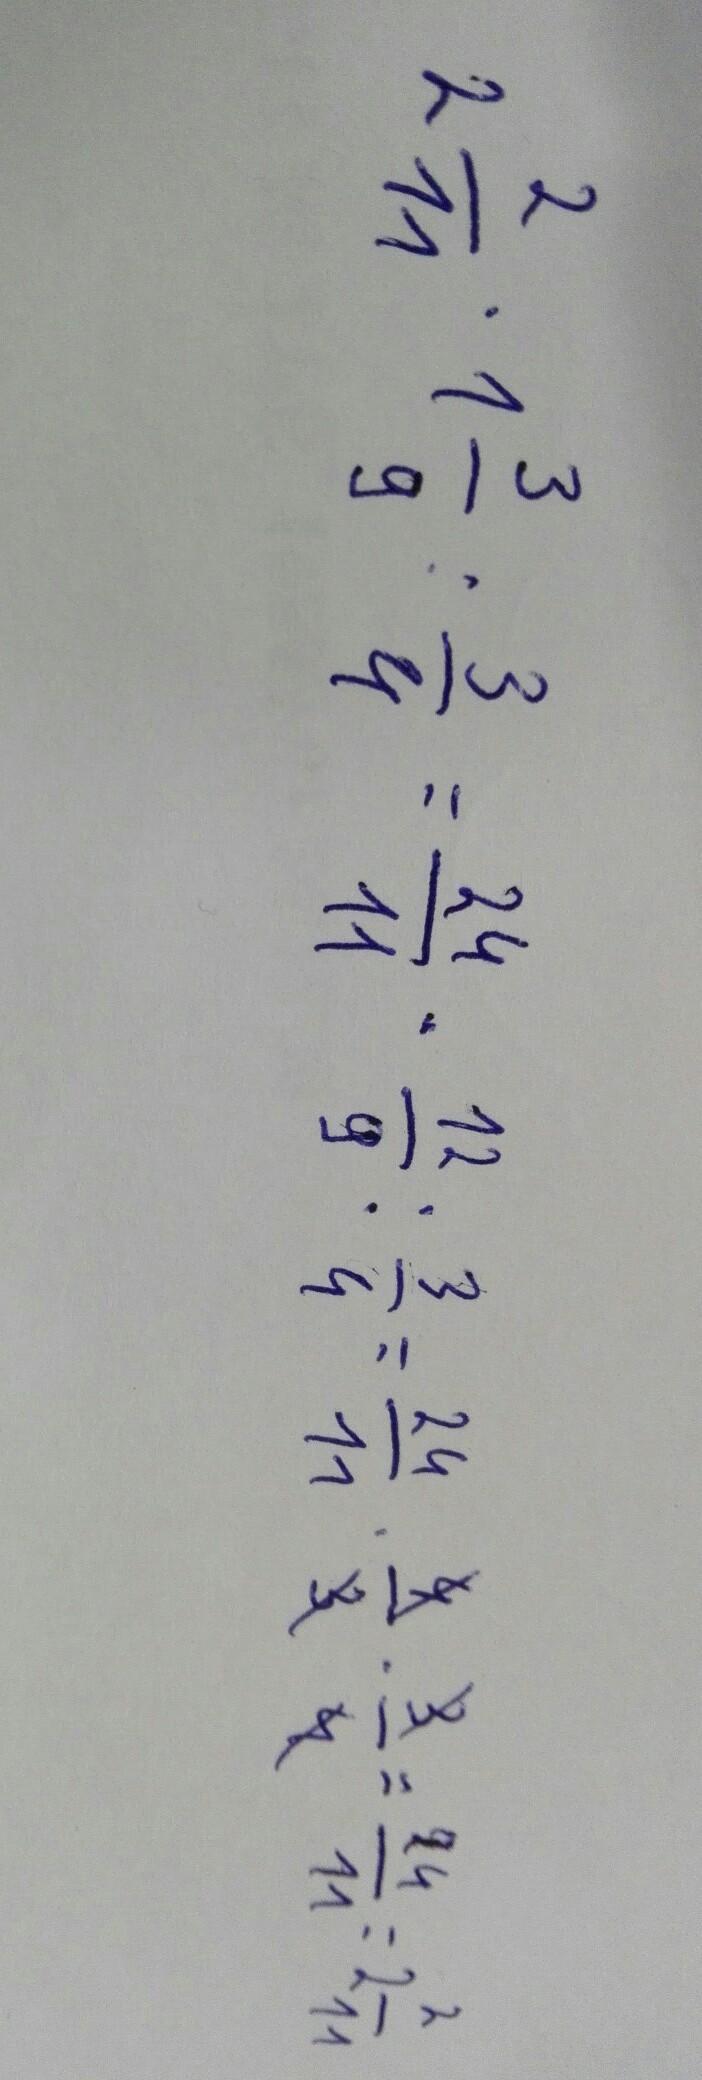 2 2/11 · 1 3/9 : 3/4 = 24/11 · 12/9 : 3/4 = 24/11 · 4/3 · 3/4 = 24/11 = 2 2/11